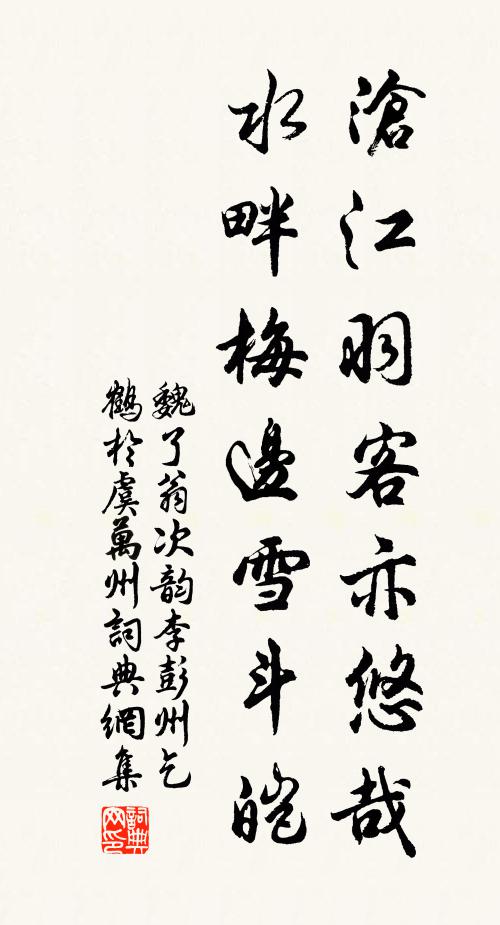 滄江羽客亦悠哉
水畔梅邊雪斗皚
魏了翁次韵李彭州乞
鶴於虞萬州詞典網集
詞典网印